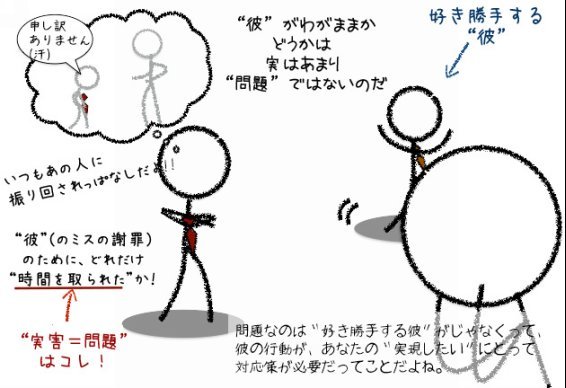 申し訳
ありません
(汗)
“彼”がわがままか
どうかは
実はあまり
“問題”ではないのだ
好き勝手する
“彼”
いつもあの人に
振り回されっぱなしだよ!!
“彼”(のミスの謝罪)
のために、どれだけ
“時間を取られた”か!
“実害＝問題”
はコレ！
問題なのは“好き勝手する彼”がじゃなくって、
彼の行動が、あなたの“実現したい”にとって
対応策が必要だってことだよね。